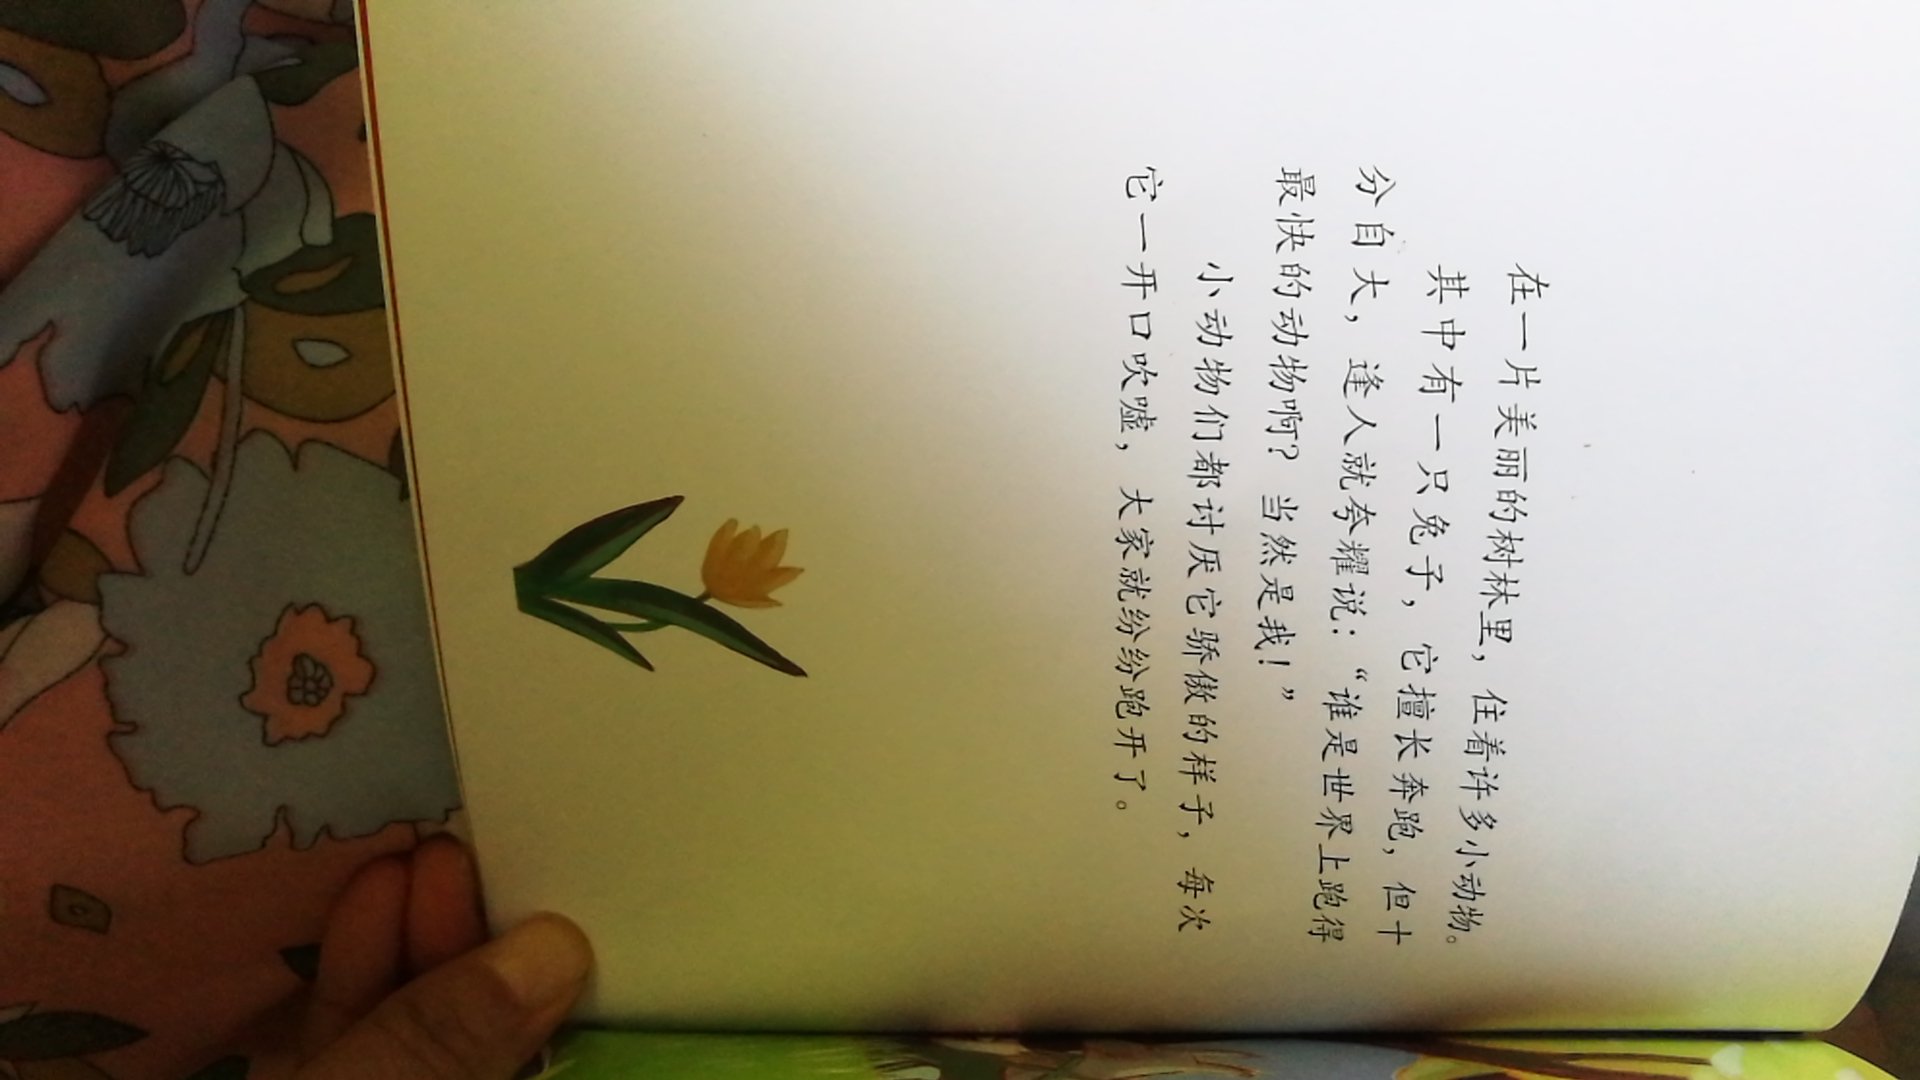 在一片美丽的树林里，住着许多小动物。
其中有一只兔子，它擅长奔跑，但十
分自大，逢人就夸耀说：“谁是世界上跑得
最快的动物啊？当然是我！”
小动物们都讨厌它骄傲的样子，每次
它一开口吹嘘，大家就纷纷跑开了。